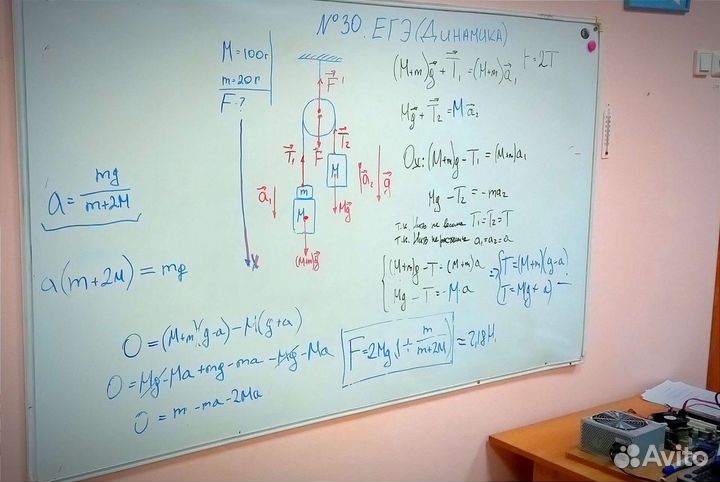 №30. ЕГЭ (Динамика)
M = 100г
m = 20г
F - ?
x
F'
T₁
T₂
F
m
M
M
a₁
a₂
g
Mg
(M+m)g
(M+m)g + T₁ = (M+m)a₁
F = 2T
Mg + T₂ = Ma₂
Ox: (M+m)g - T₁ = (M+m)a₁
Mg - T₂ = -ma₂
т.к. Нить T₁ = T₂ = T
т.к. Нить нерастяж a₁ = a₂ = a
(M+m)g - T = (M+m)a
Mg - T = -M·a
=> T = (M+m)(g-a)
T = M(g + a) —
a = mg/(m+2M)
a(m+2M) = mg
0 = (M+m)(g-a) - M(g+a)
0 = Mg - Ma + mg - ma - Mg - Ma
0 = m - ma - 2Ma
F = 2Mg(1 + m/(m+2M)) ≈ 2,18Н.
Avito